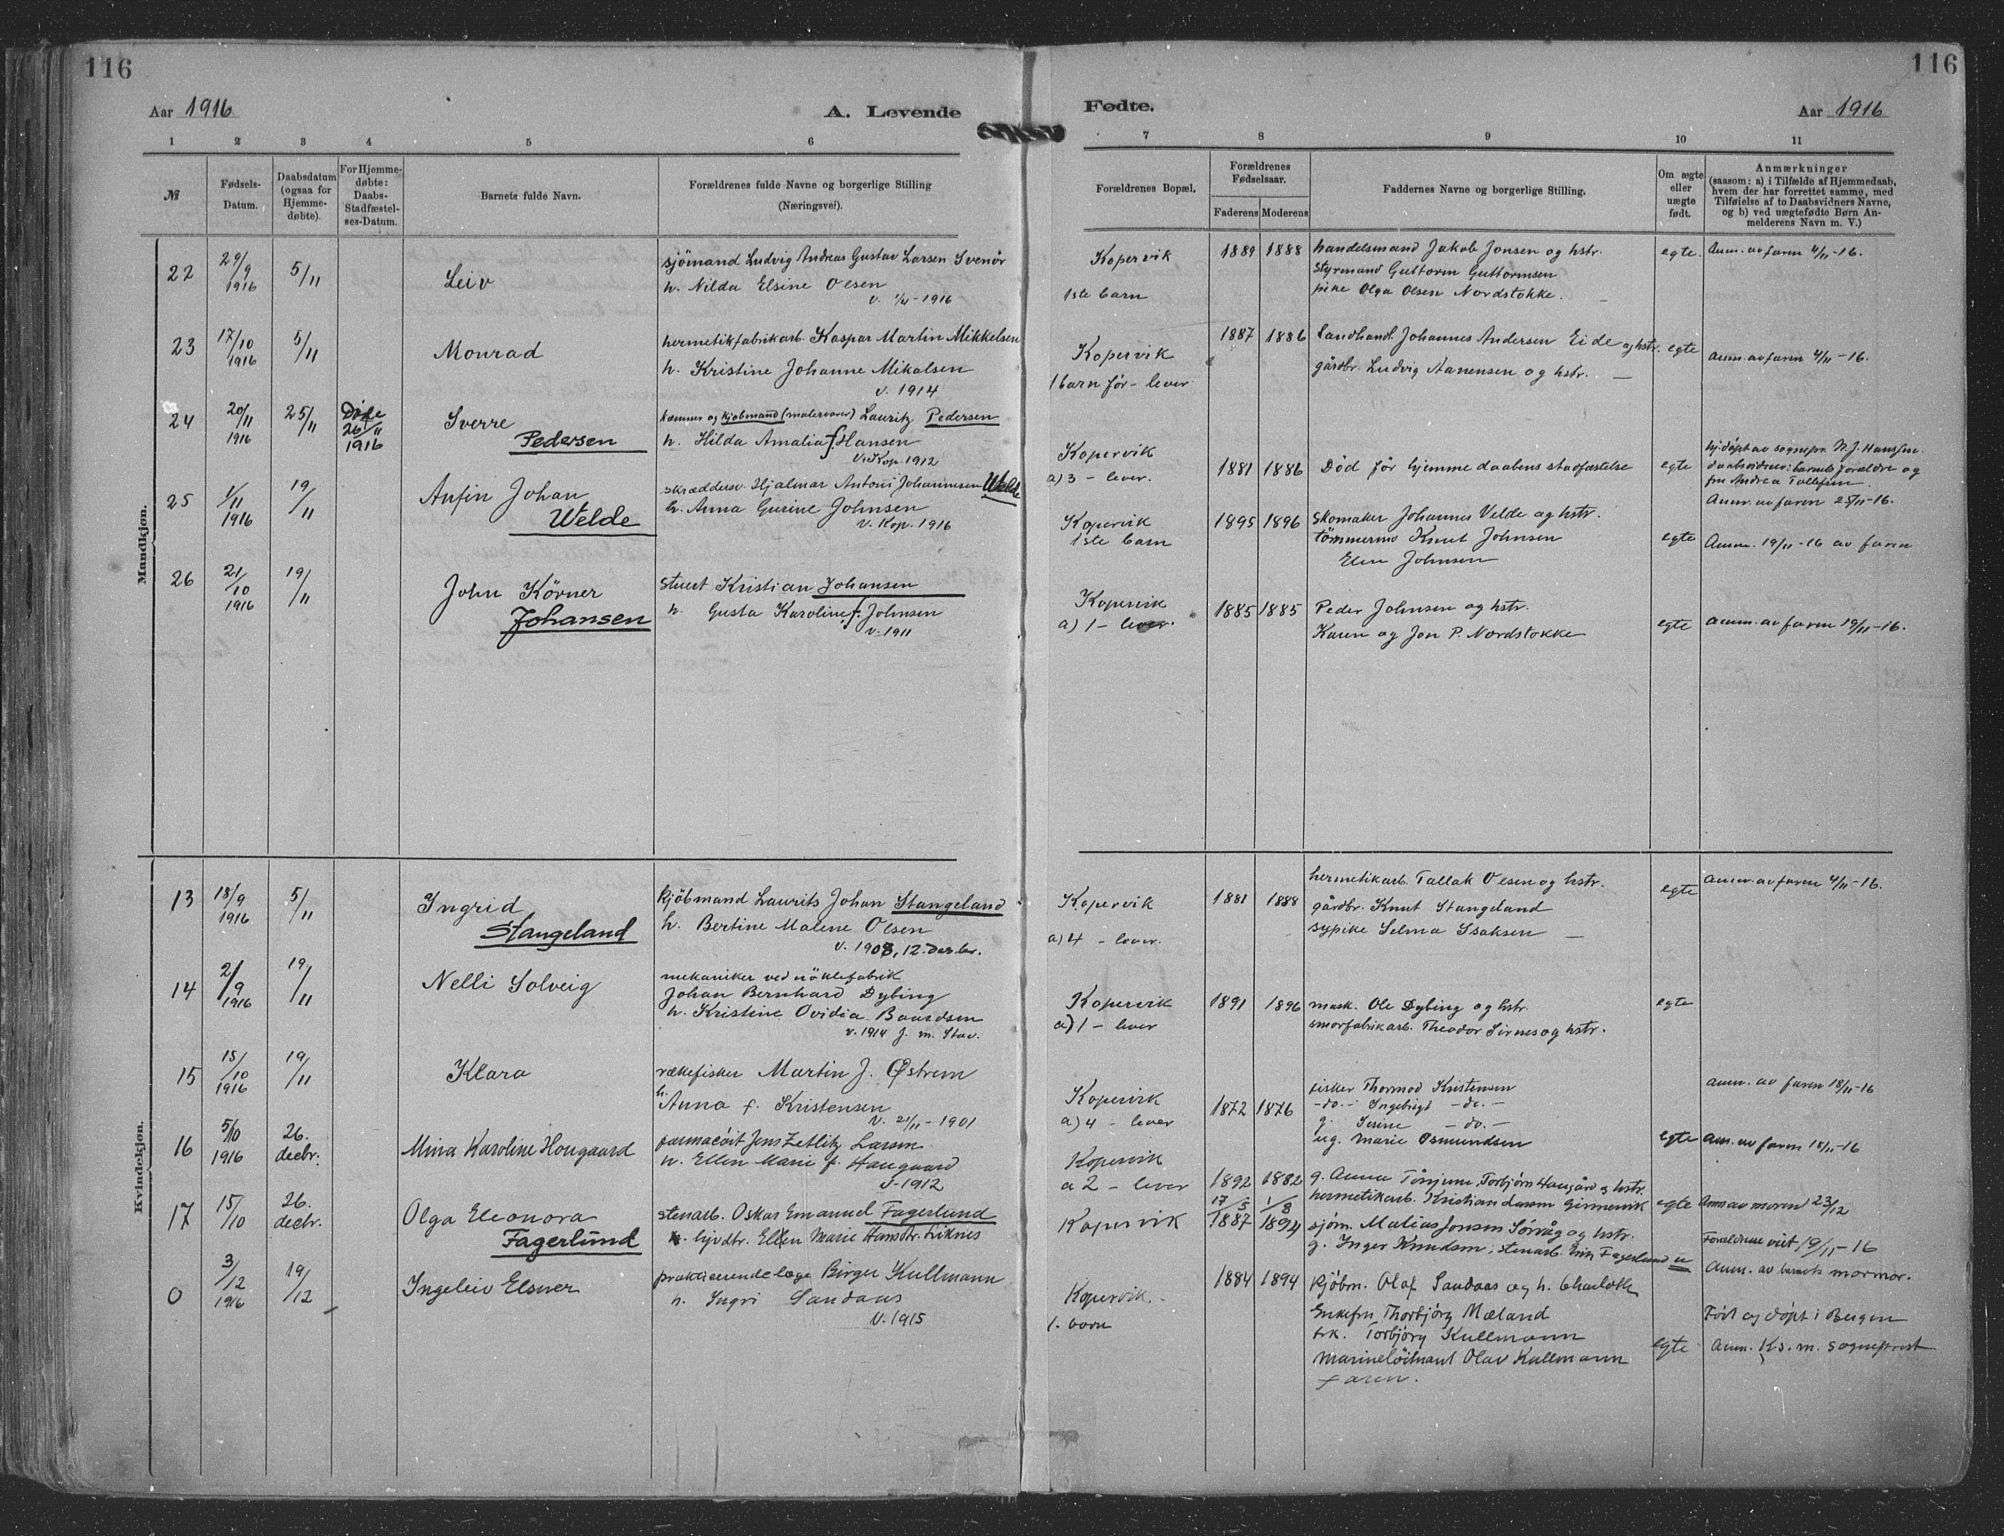 116
116
Aar 1916
A. Levende
Fødte.
Aar 1916
1 2 3 4 5 6 7 8 9 10 11
№
Fødsels-Datum.
Daabsdatum (ogsaa for Hjemmedøbte).
For Hjemmedøbte: Daabs-Stadfæstelses-Datum.
Barnets fulde Navn.
Forældrenes fulde Navne og borgerlige Stilling (Næringsvei).
Forældrenes Bopæl.
Forældrenes Fødselsaar.
Faderens Moderens
Faddernes Navne og borgerlige Stilling.
Om ægte eller uægte født.
Anmærkninger
(saasom: a) i Tilfælde af Hjemmedaab, hvem der har forrettet samme, med Tilføielse af to Daabsvidners Navne, og b) ved uægtefødte Børn Anmelderens Navn m. V.)
Mandkjøn.
22 29/9 1916 5/11 Leiv
sjömand Ludvig Andreas Gustav Larsen Svenör
h. Nilda Elsine Olsen
Kopervik
1ste barn
1889 1888
handelsmand Jakob Jonsen og hstr.
Styrmand Guttorm Guttormsen
pike Olga Olsen Nordstokke.
egte. Anm. av faren 4/11-16.
23 17/10 1916 5/11 Monrad
hermetikfabrikarb. Kaspar Martin Mikkelsen
h. Kristine Johanne Mikalsen
v. 1914
Kopervik
1 barn før - lever
1887 1886
Landhandl. Johannes Andersen Eide og hstr.
gårdbr. Ludvig Aanensen og hstr.
egte Anm. av faren 4/11-16.
24 20/11 1916 25/11 Døde 26/11 1916
Sverre Pedersen
kæmner og kjøbmand (malervarer) Lauritz Pedersen
h. Hilda Amalia f. Hansen
v. Kop. 1912
Kopervik
a) 3 - lever.
1881 1886
Død før hjemmedaabens stadfæstelse
egte
hj.døpt av sognepr. N. J. Hansson
daabsvidner: barnets forældre og
fru Andrea Tollefsen.
Anm. av faren 25/11-16.
25 1/11 1916 19/11 Anfin Johan Welde
skræddersv. Hjalmar Antoni Johannesen Welde
h. Anna Gurine Johnsen
v. Kop. 1916
Kopervik
1ste barn
1895 1896
Skomaker Johannes Velde og hstr.
tømmermd Knut Johnsen
Elen Johnsen
egte Anm. 19/11-16 av faren
26 21/10 1916 19/11 John Körner Johansen
Stuert Kristian Johansen
h. Gusta Karoline f. Johnsen
v. 1911
Kopervik
a) 1 - lever.
1885 1885
Peder Johnsen og hstr.
Karen og Jon P. Nordstokke
egte Anm. av faren 19/11-16.
Kvindekjøn.
13 18/9 1916 5/11 Ingrid Stangeland
kjöbmand Laurits Johan Stangeland
h. Bertine Malene Olsen
v. 1908, 12. decbr.
Kopervik
a) 4 - lever.
1881 1888
hermetikarb. Tallak Olsen og hstr.
gårdbr. Knut Stangeland
sypike Selma Isaksen
egte Anm. av faren 4/11-16.
14 2/9 1916 19/11 Nelli Solveig
mekaniker ved nöklefabrik
Johan Bernhard Dybing
h. Kristine Ovidia Baardsen
v. 1914 J. m. Stav.
Kopervik
a) 1 - lever
1891 1896
mask. Ole Dybing og hstr.
smørfabrikarb. Theodor Sirnes og hstr.
egte
15 15/10 1916 19/11 Klara
rækefisker Martin J. Østrem
h. Anna f. Kristensen
v. 21/11-1901
Kopervik
a) 4 - lever
1872 1876
fisker Thormod Kristensen
-do- Ingebrigt -do-
g. Serine -do-
ug. Marie Osmundsen
egte
Anm. av faren 18/11-16
16 5/10 1916 26. decbr. Mina Karoline Hougaard
farmacöit Jens Zetlitz Larsen
h. Ellen Marie f. Haugaard
v. 1912
Kopervik
a 2 - lever
1892 1882
g. Anna Tönnene, Torbjörn Haugård og hstr.
hermetikarb. Kristian Larsen Ginnervik
Anm. av faren 18/11-16
17 15/10 26. decbr. Olga Eleonora Fagerlund
stenarb. Oskar Emanuel Fagerlund
hjvdtr. Ellen Marie Hansdtr. Eriknes
Kopervik
17/5 1887 1/8 1894
sjöm. Matias Jonsen Sörvåg og hstr.
g. Inger Knudsen, stenarb. Erik Fagerlund
egte Anm av moren 23/12
Forældrene viet 19/11-16
Anm. av barnets mormor.
0 3/12 1916 19/12 Ingeleiv Elsner
praktiserende læge Birger Kullmann
h. Ingri Sandaas
v. 1915
Kopervik.
1. barn
1884 1894
kjøbm. Olaf Sandaas og h. Charlotte
Enkefru Thorbjörg Mæland
frk. Torbjörg Kullmann
Marinelöitnant Olav Kullmann
faren.
egte
Født og døpt i Bergen
Anm. Ks. m. sogneprest